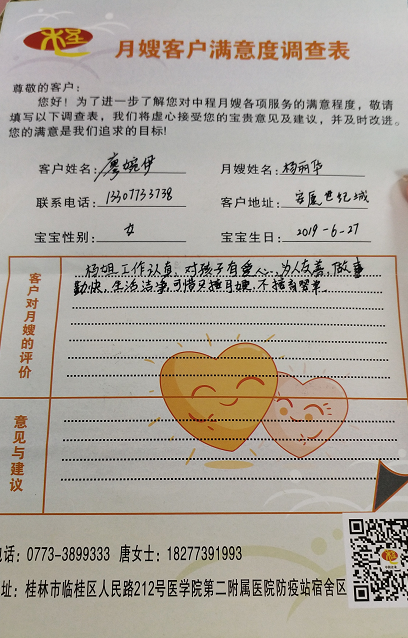 月嫂客户满意度调查表
尊敬的客户：
您好！为了进一步了解您对中程月嫂各项服务的满意程度，敬请
填写以下调查表，我们将虚心接受您的宝贵意见及建议，并及时改进。
您的满意是我们追求的目标！
客户姓名：廖婉伊 月嫂姓名：杨丽华
联系电话：13307733738 客户地址：安厦世纪城
宝宝性别：女 宝宝生日：2019-6-27
客户对月嫂的评价
杨姐工作认真，对孩子有爱心，为人友善，做事
勤快，生活洁净，可惜只接月嫂，不接育婴单。
意见与建议
电话：0773-3899333 唐女士：18277391993
址：桂林市临桂区人民路212号医学院第二附属医院防疫站宿舍区